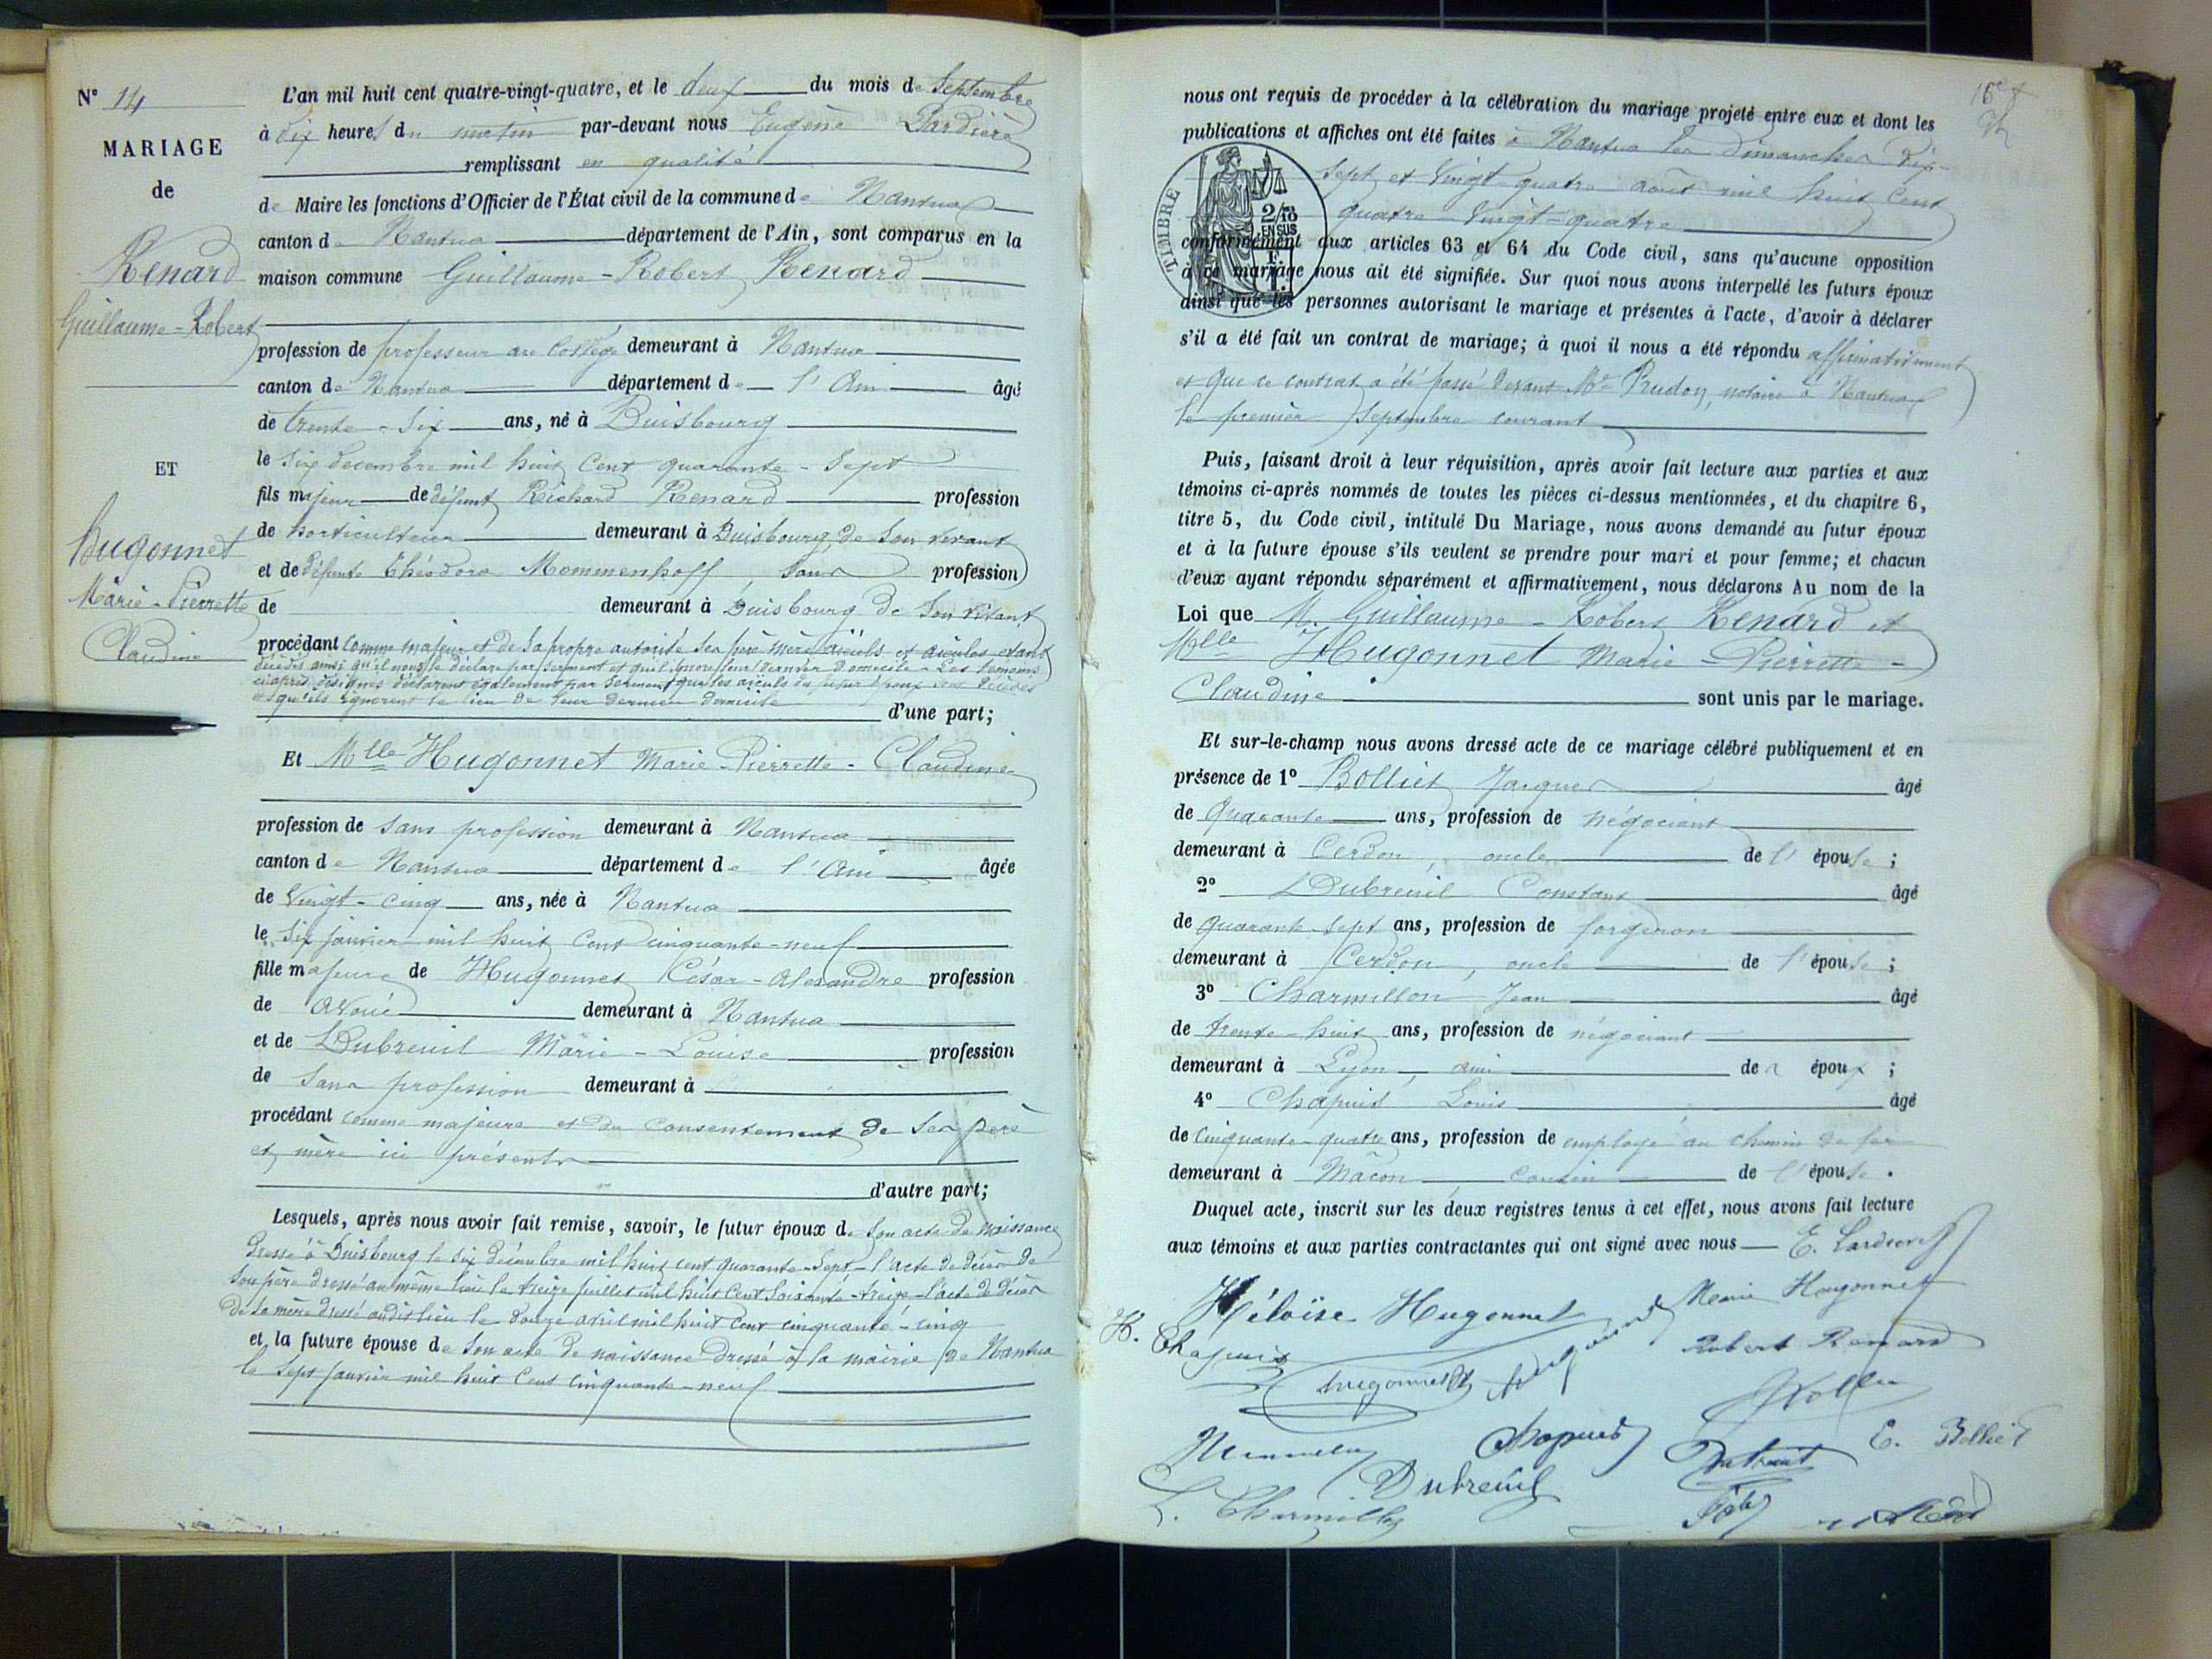 N° 14
MARIAGE
de
Renard
Guillaume-Robert
ET
Hugonnet
Marie-Pierrette
Claudine
L'an mil huit cent quatre-vingt-quatre, et le deux du mois de Septembre
à dix heures du matin par-devant nous Eugène Lardière
remplissant en qualité
de Maire les fonctions d'Officier de l'État civil de la commune de Nantua
canton de Nantua département de l'Ain, sont comparus en la
maison commune Guillaume-Robert Renard
profession de professeur au Collège demeurant à Nantua
canton de Nantua département de l'Ain âgé
de trente-six ans, né à Duisbourg
le six décembre mil huit cent quarante-sept
fils majeur de défunt Richard Renard profession
de horticulteur demeurant à Duisbourg de son vivant
et de défunte Théodora Mommenhoff, sans profession
de demeurant à Duisbourg de son vivant
procédant comme majeur et de sa propre autorité ses père mère aïeuls et aïeules étant
décédés ainsi qu'il nous le déclare par serment et qu'il ignore leur dernier domicile - Les témoins
ci après désignés déclarent également par serment que les aïeuls du futur époux sont décédés
et qu'ils ignorent le lieu de leur dernier domicile
d'une part;
Et Mlle Hugonnet Marie-Pierrette-Claudine
profession de sans profession demeurant à Nantua
canton de Nantua département de l'Ain âgée
de vingt-cinq ans, née à Nantua
le six janvier mil huit cent cinquante-neuf
fille majeure de Hugonnet César-Alexandre profession
de avoué demeurant à Nantua
et de Dubreuil Marie-Louise profession
de sans profession demeurant à
procédant comme majeure et du consentement de ses père
et mère ici présents
d'autre part;
Lesquels, après nous avoir fait remise, savoir, le futur époux de son acte de naissance
dressé à Duisbourg le six décembre mil huit cent quarante-sept - l'acte de décès de
son père dressé au même lieu le treize juillet mil huit cent soixante-treize - l'acte de décès
de sa mère dressé audit lieu le douze avril mil huit cent cinquante-cinq
et la future épouse de son acte de naissance dressé à la mairie de Nantua
le sept janvier mil huit cent cinquante-neuf
nous ont requis de procéder à la célébration du mariage projeté entre eux et dont les
publications et affiches ont été faites à Nantua les dimanches dix-
sept et vingt-quatre août mil huit cent
quatre-vingt-quatre
TIMBRE
2/10 EN SUS
conformément aux articles 63 et 64 du Code civil, sans qu'aucune opposition
à ce mariage nous ait été signifiée. Sur quoi nous avons interpellé les futurs époux
ainsi que les personnes autorisant le mariage et présentes à l'acte, d'avoir à déclarer
s'il a été fait un contrat de mariage; à quoi il nous a été répondu affirmativement
et que ce contrat a été passé devant Me Prudon, notaire à Nantua
le premier septembre courant
Puis, faisant droit à leur réquisition, après avoir fait lecture aux parties et aux
témoins ci-après nommés de toutes les pièces ci-dessus mentionnées, et du chapitre 6,
titre 5, du Code civil, intitulé Du Mariage, nous avons demandé au futur époux
et à la future épouse s'ils veulent se prendre pour mari et pour femme; et chacun
d'eux ayant répondu séparément et affirmativement, nous déclarons Au nom de la
Loi que M. Guillaume-Robert Renard et
Mlle Hugonnet Marie-Pierrette-
Claudine sont unis par le mariage.
Et sur-le-champ nous avons dressé acte de ce mariage célébré publiquement et en
présence de 1° Bolliet Jacques âgé
de quarante ans, profession de négociant
demeurant à Cerdon, oncle de l'épouse;
2° Dubreuil Constant âgé
de quarante-sept ans, profession de forgeron
demeurant à Cerdon, oncle de l'épouse;
3° Charmillon Jean âgé
de trente-huit ans, profession de négociant
demeurant à Lyon, ami de l'époux;
4° Chapuis Louis âgé
de cinquante-quatre ans, profession de employé au chemin de fer
demeurant à Mâcon, cousin de l'épouse.
Duquel acte, inscrit sur les deux registres tenus à cet effet, nous avons fait lecture
aux témoins et aux parties contractantes qui ont signé avec nous E. Lardière
Héloïse Hugonnet Marie Hugonnet
H. Chapuis Robert Renard
Hugonnet
Chapuis E. Bolliet
Dubreuil
L. Charmillon